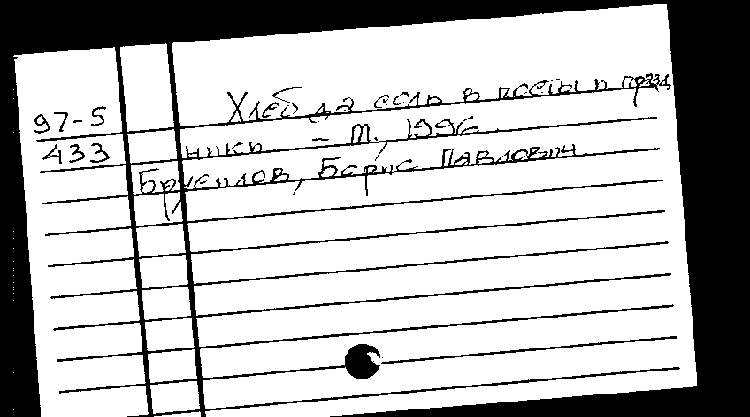 Хлеб да соль в посты и празд
97-5
никы - М., 1996.
433
Брусилов, Борис Павлович.